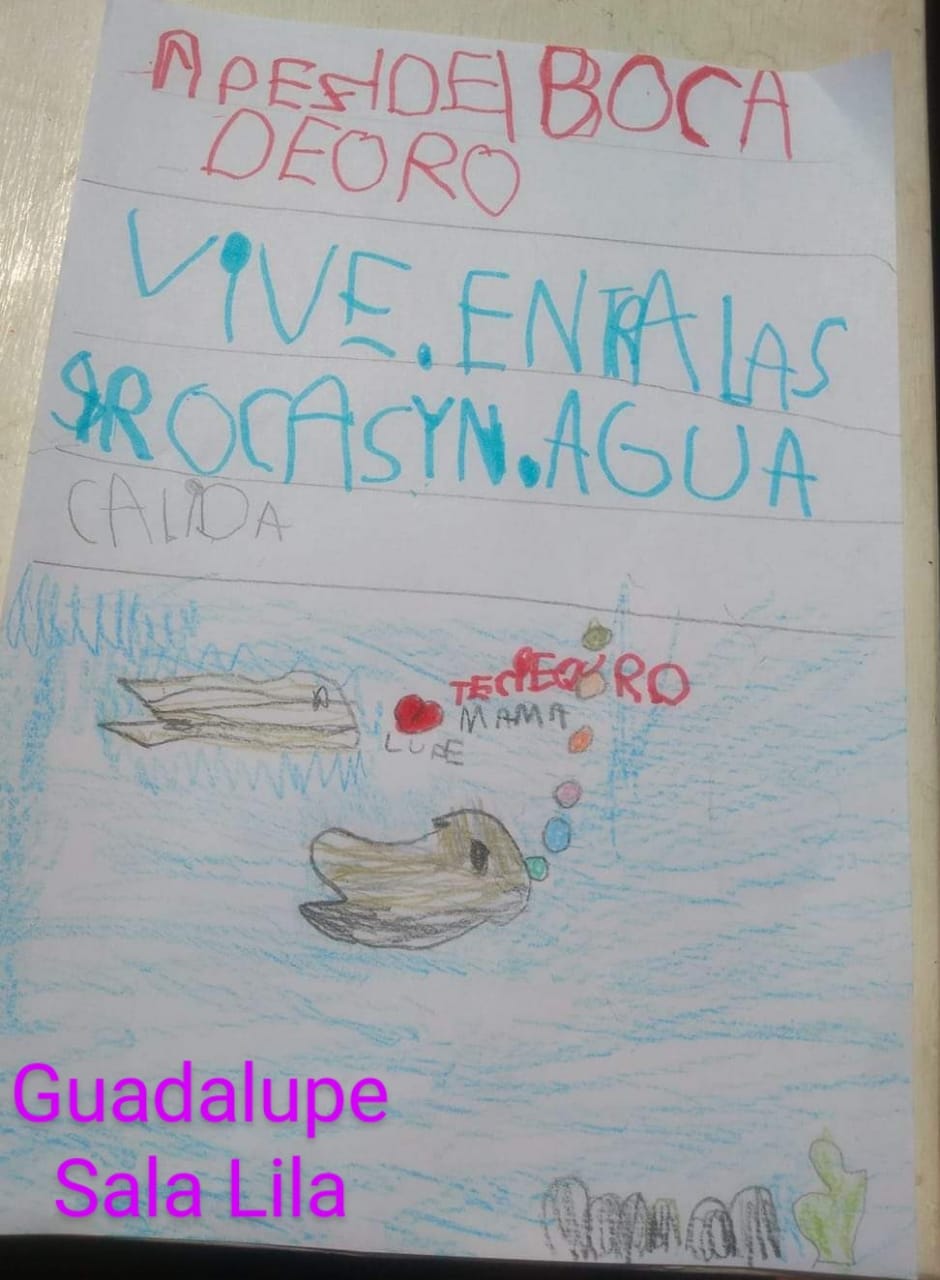 APESHDEL BOCA
DEORO
VIVE. ENTRA LAS
ROCAS YN. AGUA
CALIDA
MAMA
LUPE
Guadalupe
Sala Lila